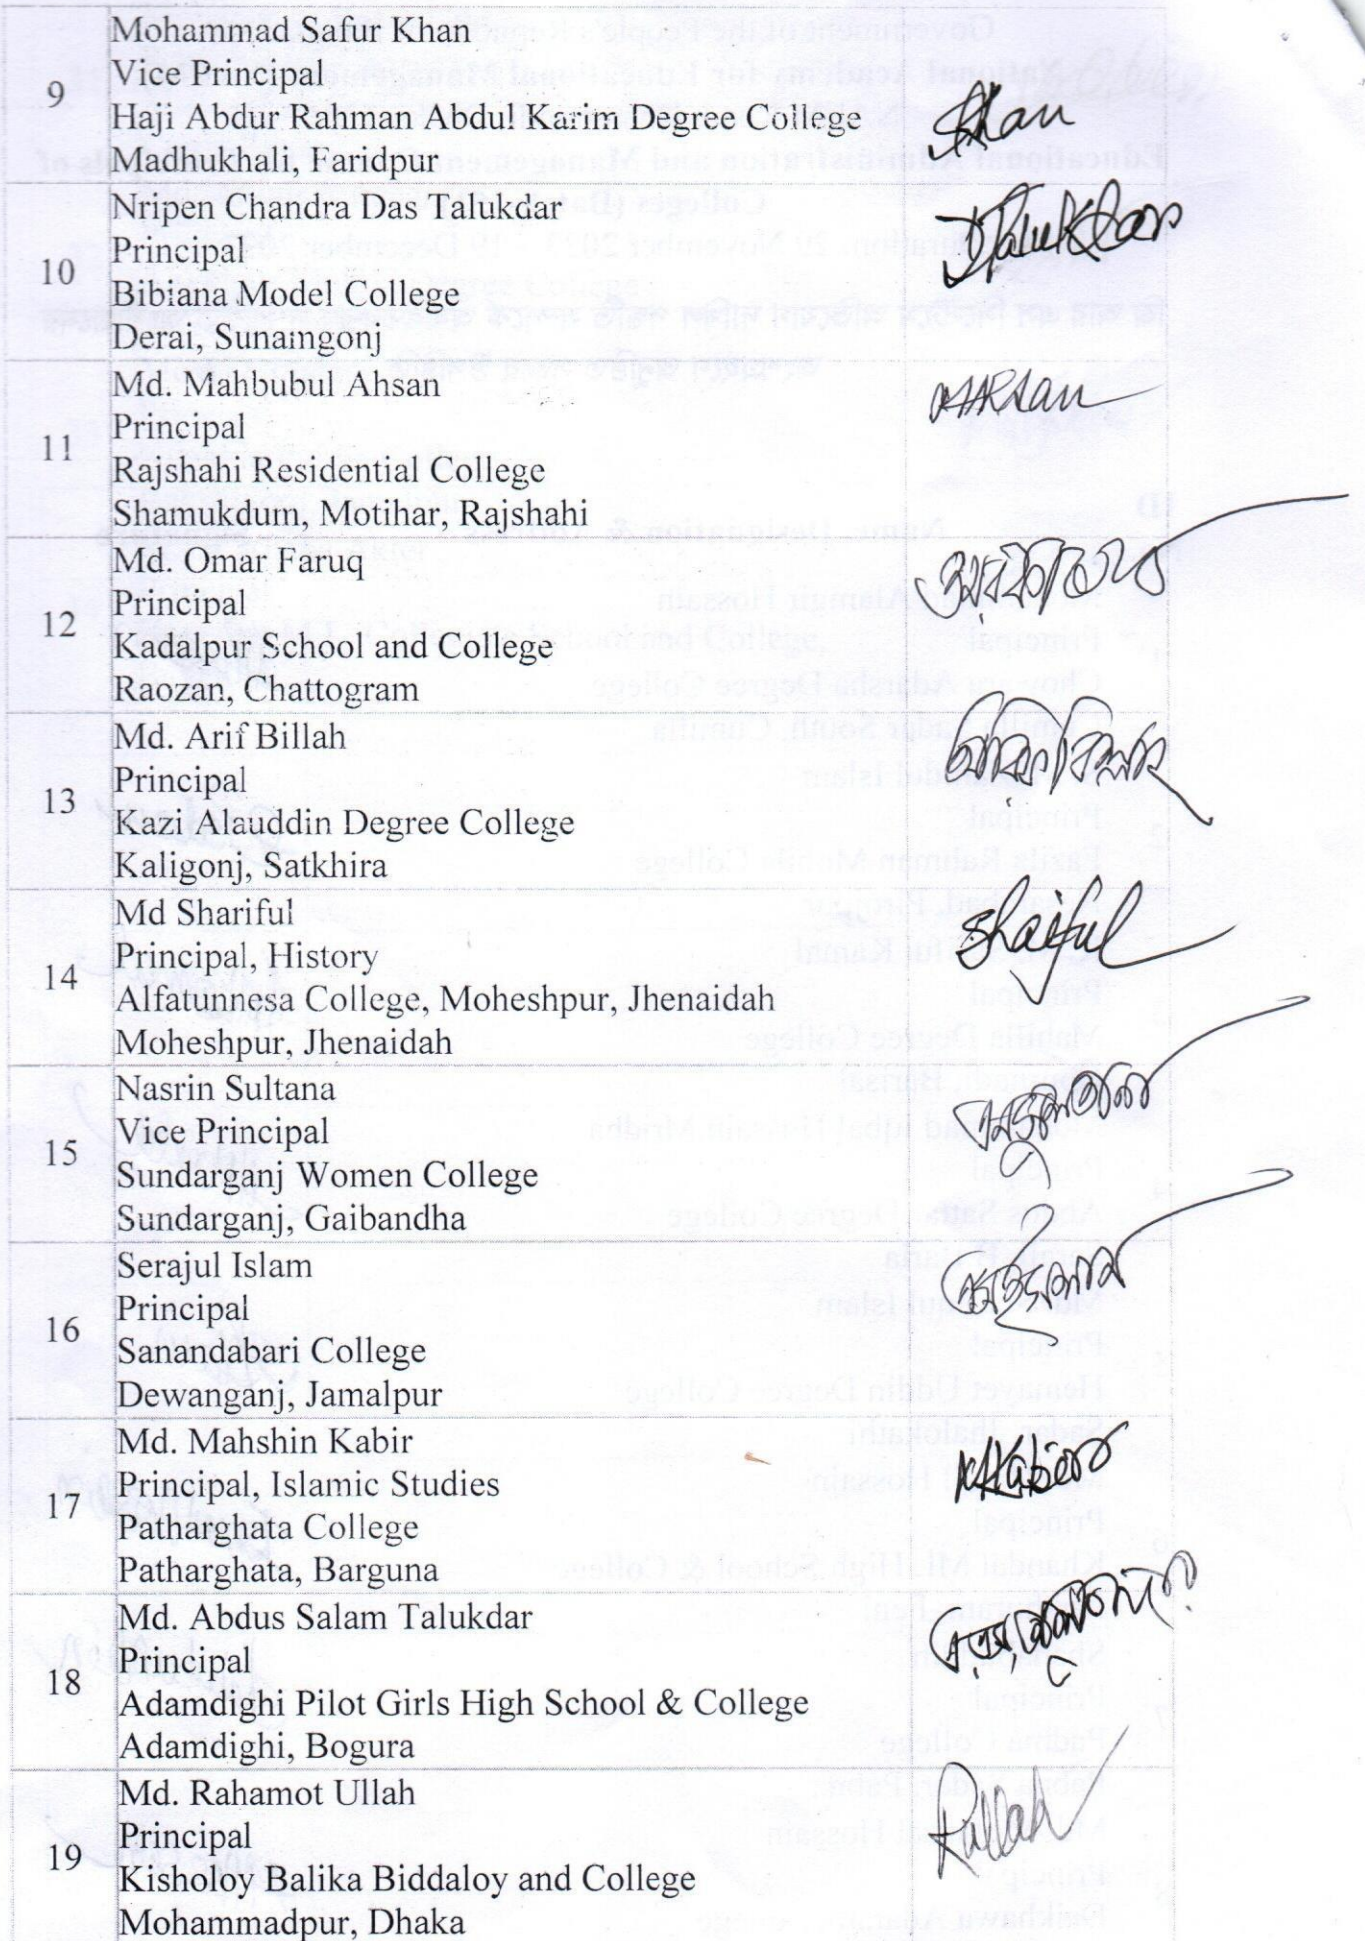 9
Mohammad Safur Khan
Vice Principal
Haji Abdur Rahman Abdul Karim Degree College
Madhukhali, Faridpur
Khan
10
Nripen Chandra Das Talukdar
Principal
Bibiana Model College
Derai, Sunamgonj
Talukdar
11
Md. Mahbubul Ahsan
Principal
Rajshahi Residential College
Shamukdum, Motihar, Rajshahi
12
Md. Omar Faruq
Principal
Kadalpur School and College
Raozan, Chattogram
13
Md. Arif Billah
Principal
Kazi Alauddin Degree College
Kaligonj, Satkhira
14
Md Shariful
Principal, History
Alfatunnesa College, Moheshpur, Jhenaidah
Moheshpur, Jhenaidah
15
Nasrin Sultana
Vice Principal
Sundarganj Women College
Sundarganj, Gaibandha
16
Serajul Islam
Principal
Sanandabari College
Dewanganj, Jamalpur
17
Md. Mahshin Kabir
Principal, Islamic Studies
Patharghata College
Patharghata, Barguna
18
Md. Abdus Salam Talukdar
Principal
Adamdighi Pilot Girls High School & College
Adamdighi, Bogura
19
Md. Rahamot Ullah
Principal
Kisholoy Balika Biddaloy and College
Mohammadpur, Dhaka
Rullah